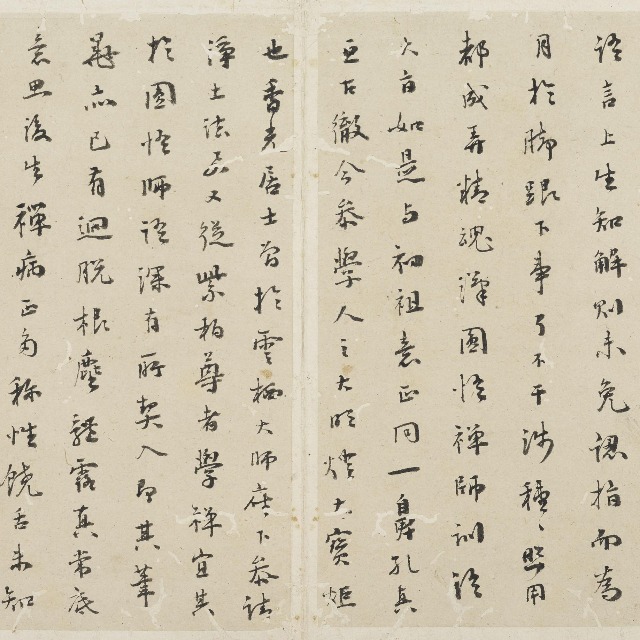 語言上生知解則未免認指而為
月於腳跟下事了不干涉種〻照用
都成弄精魂譯圜悟禪師訓語
大旨如是与初祖意正同一鼻孔真
亘古徹今參學人之大明燈大寶炬
也香光居士曾於雲栖大師座下參請
淨土法品又從紫柏尊者學禪宜其
於圜悟師語深有所契入即其筆
墨亦已有迴脫根塵體露真常底
意思後生禪病正為称性饒舌未知